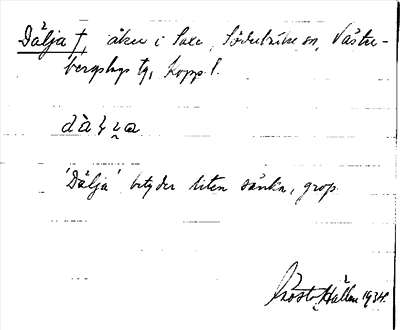 Dälja †, åker i Saxe, Söderbärke sn, Väster-
bergslags tg, Kopp. l.
'Dälja' betyder liten sänka, grop.
Gösta Hallen 1934.